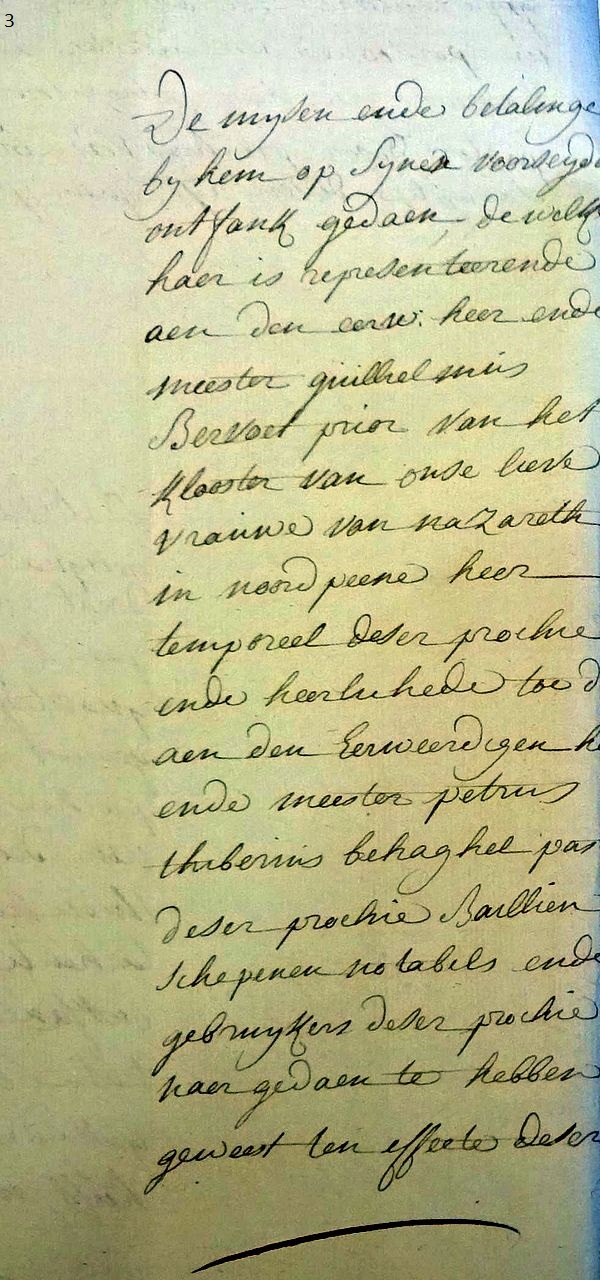 3
De mysen ende betalinge
by hem op Synen voorseyde
ontfank gedaen, de welke
haer is representeerende
aen den eerw: heer ende
meester guilhelmus
Bervoet prior van het
klooster van onse lieve
vrauwe van nazareth
in noordpeene heer
temporeel deser prochie
ende heerlichede toe d
aen den Eerweerdigen he
ende meester petrus
thiberius behaghel pas
deser prochie Baillien
schepenen notabels ende
gebruykers deser prochie
naer gedaen te hebben
geweest ten effecte deser